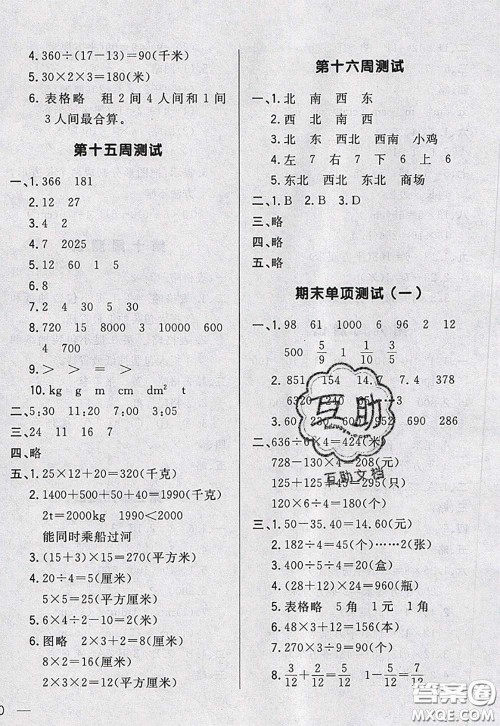 4. 360÷(17-13)=90(千米)
5. 30×2×3=180(米)
6. 表格略 租2间4人间和1间
3人间最合算。
第十五周测试
一、1. 366 181
2. 12 27
3. 2 4
4. 7 2025
5. 12 60 1 5
6. 8
7. 2 4 30 5 30
8. 720 15 8000 3 10000 9000
4 700
9. > > = <
10. kg g m cm dm² t
二、5:30 11:20 7:00 3:05
三、24 11 16 7
四、略
五、1. 25×12+20=320(千克)
2. 1400+500+50+40=1990(千克)
2t=2000kg 1990<2000
能同时乘船过河
3. (15+3)×15=270(平方米)
4. 20÷4=5(厘米)
5×5=25(平方厘米)
5. 6×6=36(平方分米)
6. 图略 2×3+2=8(厘米)
8×2=16(厘米)
2×2×3=12(平方厘米)
第十六周测试
一、1. 北 南 西 东
2. 西 北 南
3. 北 西北 东北 西南 小鸡
4. 左 7 右 7 下 6 上 6
5. 东北 西北 东北 商场
二、1. B 2. B 3. D
三、略
四、略
五、略
期末单项测试(一)
一、1. 98 61 1000 6 96 2 12
500 5/9 1 5/21 9/10 3/5
2. 851 154 14.7 7.4 378
6320 240 952 690
3. 0.82 9 320 658
二、636÷6×4=424(米)
728-130×4=208(米)
125+125+45=295(只)
120×6÷4=180(个)
三、1. 50-35.40=14.60(元)
2. 182÷4=45(台)……2(张)
3. 270÷5×4=
4. (28+12)×24=960(瓶)
5. 表格略 5角 1元 5角
6. 24÷3×4=32(本)
7. 270÷3÷9=10(个)
8. 3/12+5/12=8/12 1-8/12=4/12
互助
互助文档
答案圈
MXQE.COM